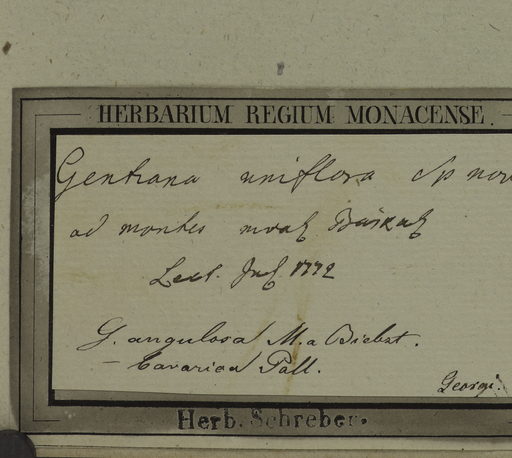 HERBARIUM REGIUM MONACENSE.
Gentiana uniflora Sp nov
ad montes Baikal
Lect. Jul. 1772
G. angulosa M. a Biebst.
— bavarica Pall.
Georgi.
Herb. Schreber.